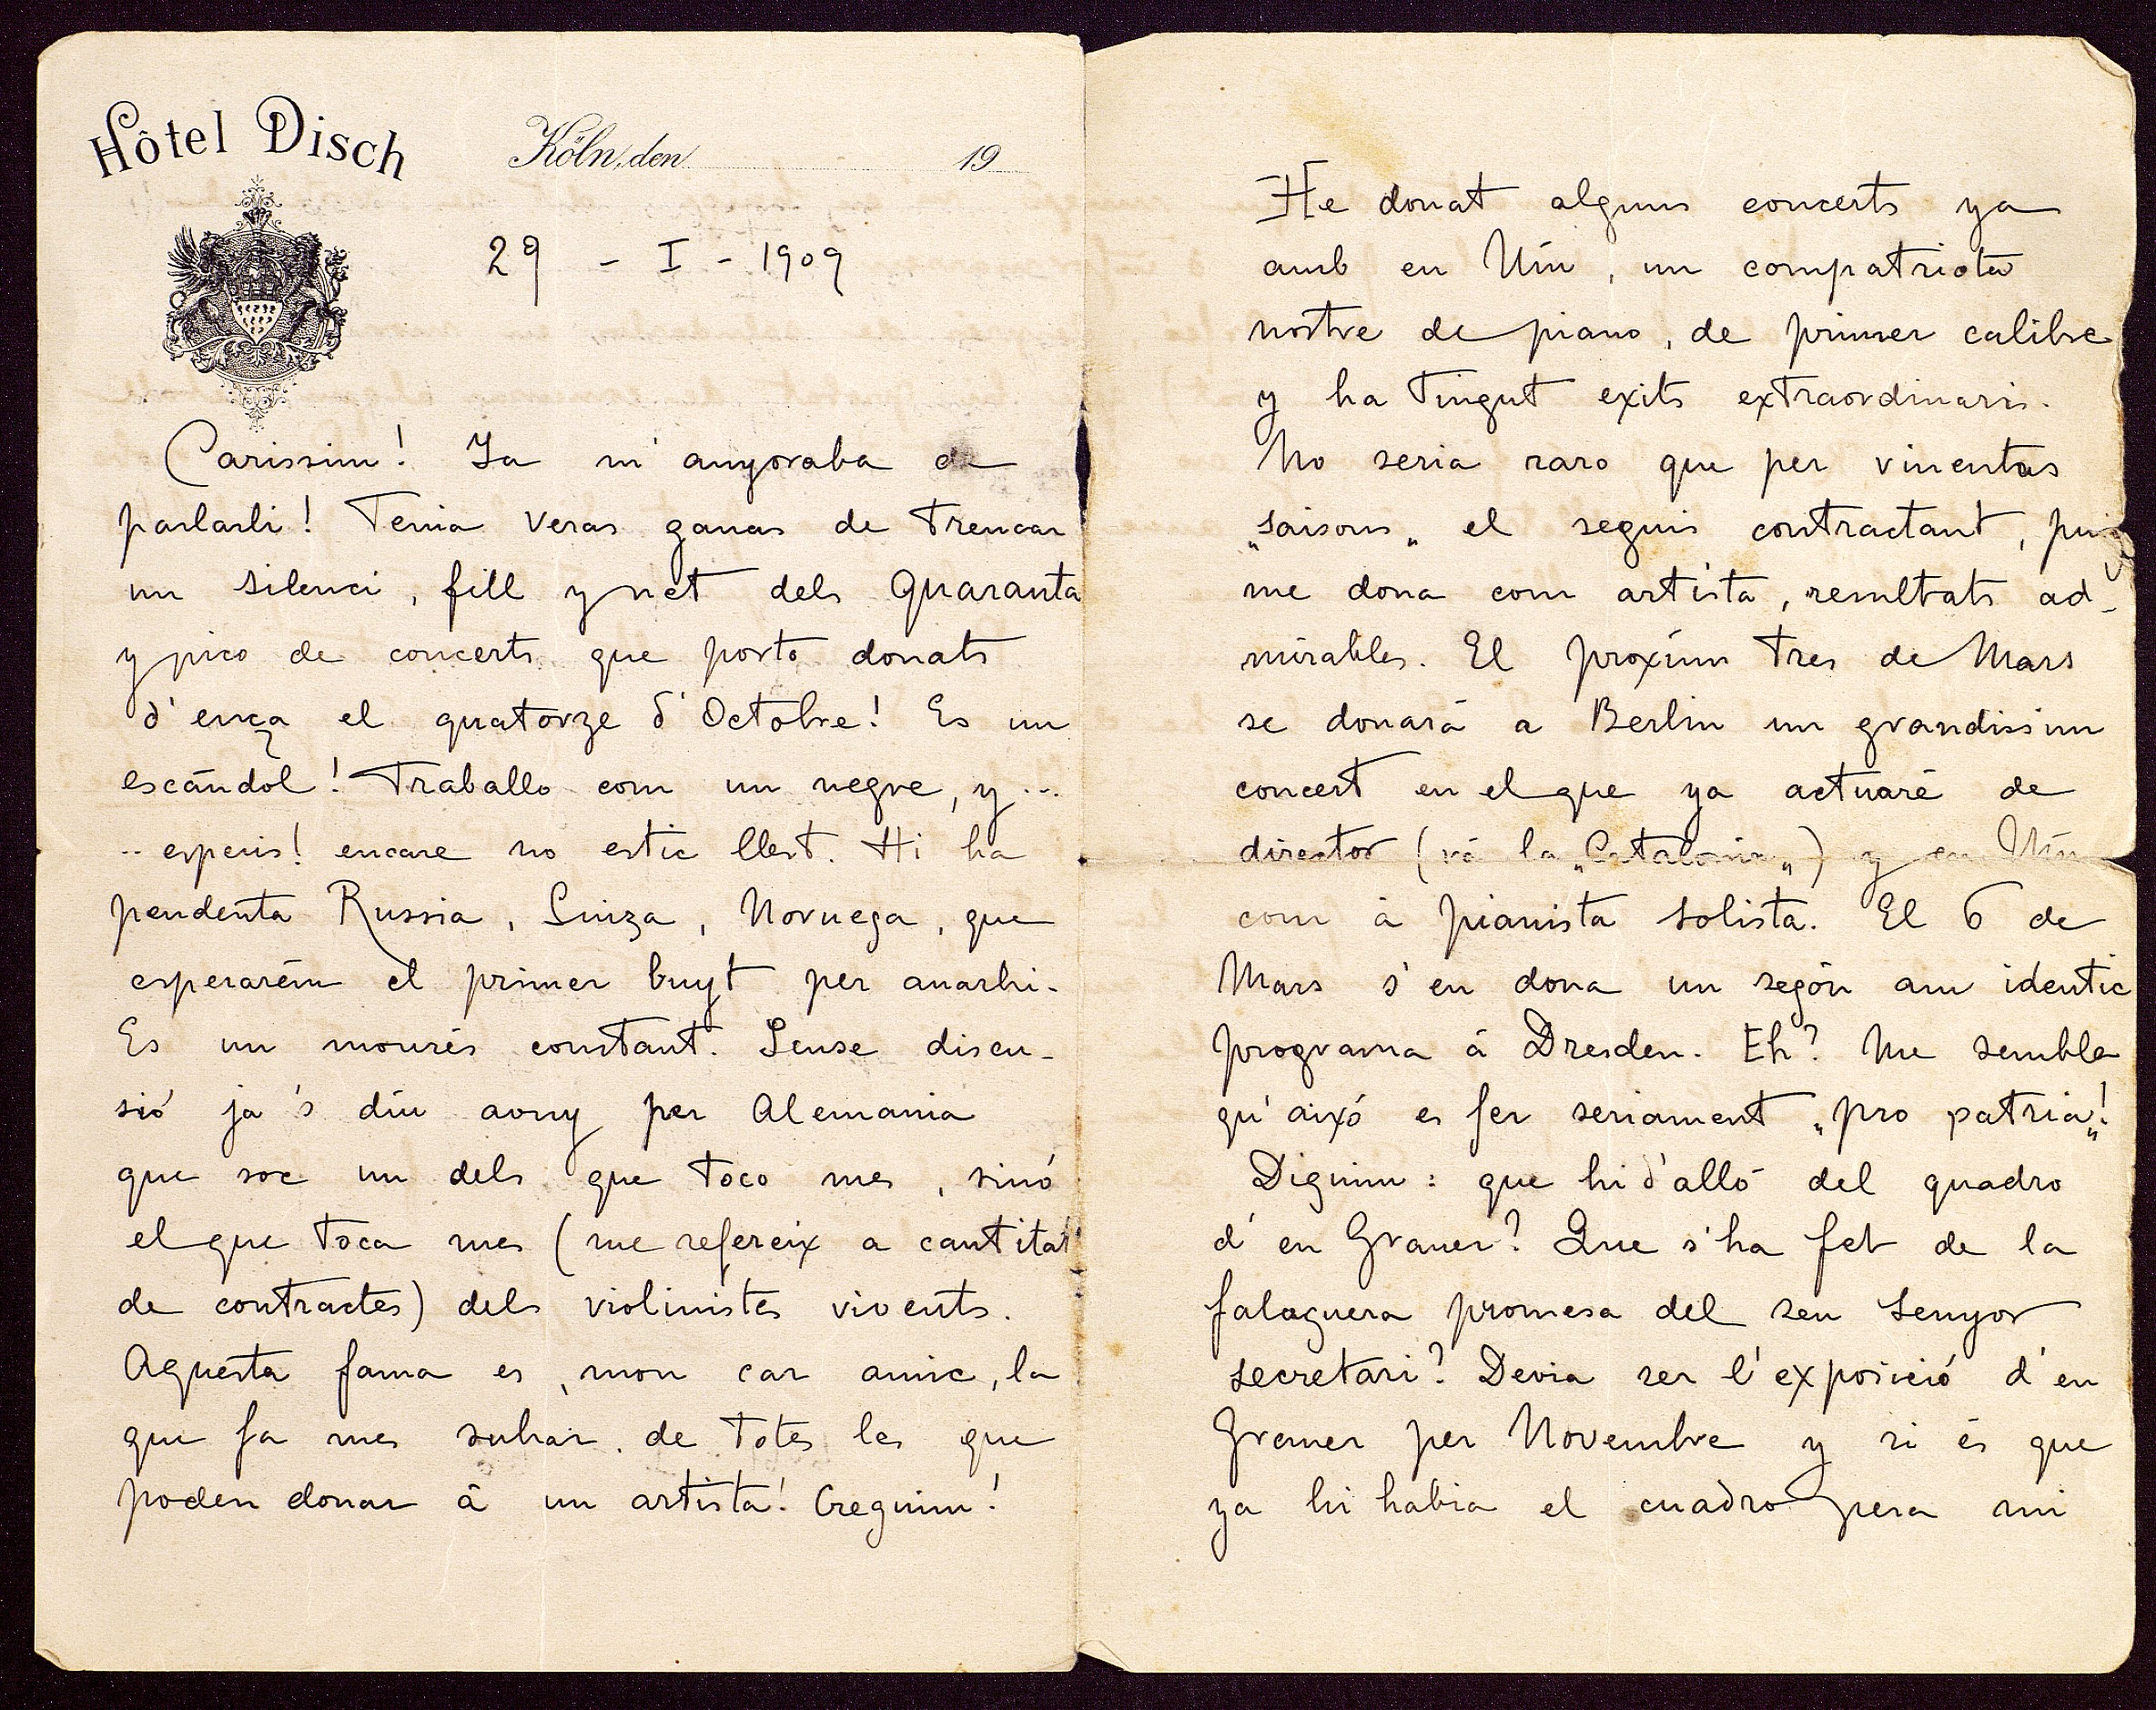 Hôtel Disch
Köln, den 19
29 - I - 1909
Carissim! Ja m'anyoraba de
parlarli! Tenia veras ganas de trencar
un silenci, fill y net dels quaranta
y pico de concerts que porto donats
d'ença el quatorze d'Octobre! Es un
escándol! Traballo com un negre, y ...
.. esperis! encare no estic llest. Hi ha
pendenta Russia, Suiza, Noruega, que
esperarém el primer buyt per anarhi.
Es un mourés constant. Sense discu-
sió ja 's diu avuy per Alemania
que soc un dels que toco mes, sinó
el que toca mes (me refereix a cantitat
de contractes) dels violinistes vivents.
Aquesta fama es, mon car amic, la
que fa mes suhar de totes les que
poden donar á un artista! Creguim!
He donat alguns concerts ya
amb en Nin, un compatriota
nostre de piano, de primer calibre
y ha tingut exits extraordinaris.
No seria raro que per vinentas
„saisons„ el seguis contractant, puig
me dona com artista, resultats ad-
mirables. El proxim tres de Mars
se donará a Berlin un grandissim
concert en el que ya actuaré de
director (vá la „Catalonia„) y en Nin
com á pianista solista. El 6 de
Mars s'en dona un segón am identic
programa á Dresden. Eh? Me sembla
qu'aixó es fer seriament „pro patria„!
Diguim: que hi d'alló del quadro
d'en Graner? Que s'ha fet de la
falaguera promesa del seu senyor
secretari? Devia ser l'exposició d'en
Graner per Novembre y si és que
ya hi habia el cuadro pera mi